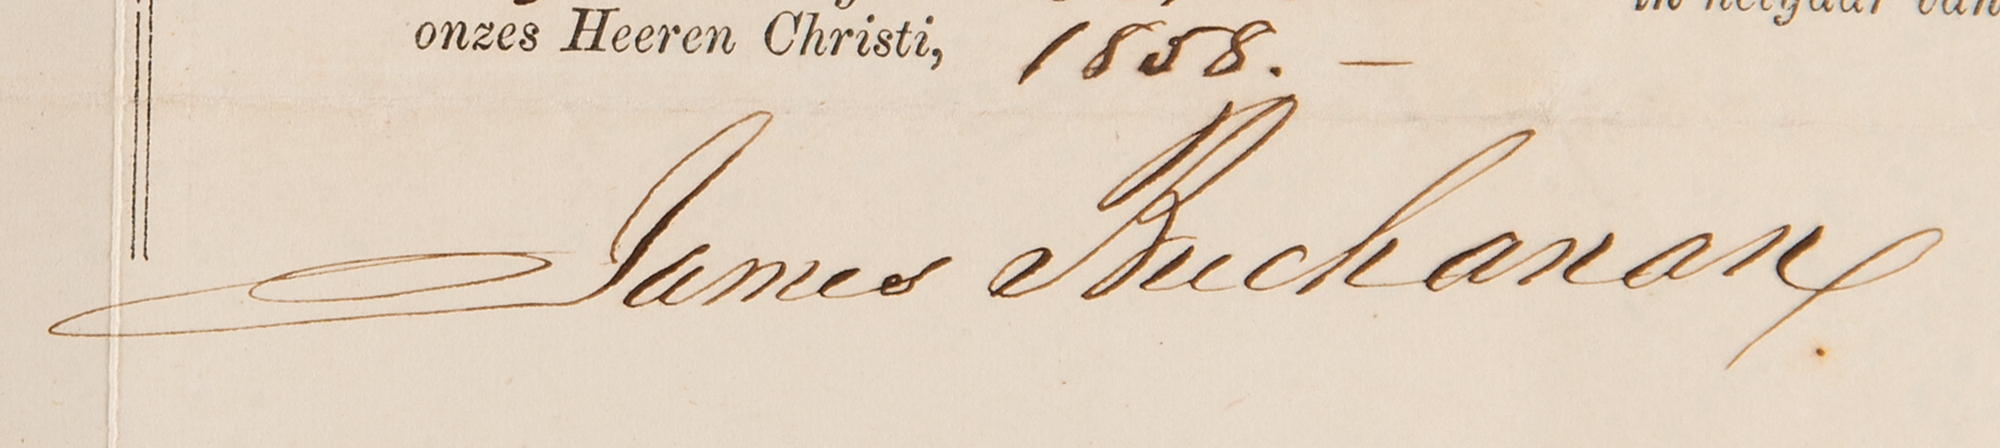 in het jaar van
onzes Heeren Christi, 1858. —
James Buchanan